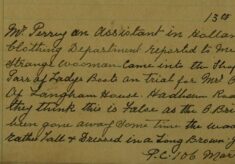 13th
Mr. Perry an Assistant in Hollan
Clothing Department reported to me
Strange woman came into the Shop
Pars of Ladys Boots on trial for Mrs B
Of Langham House. Hadham Road
they think this is False as the O Bri
been gone away some time the woma
rather Tall & Dressed in a Long Brown
P.C. 106 Mar